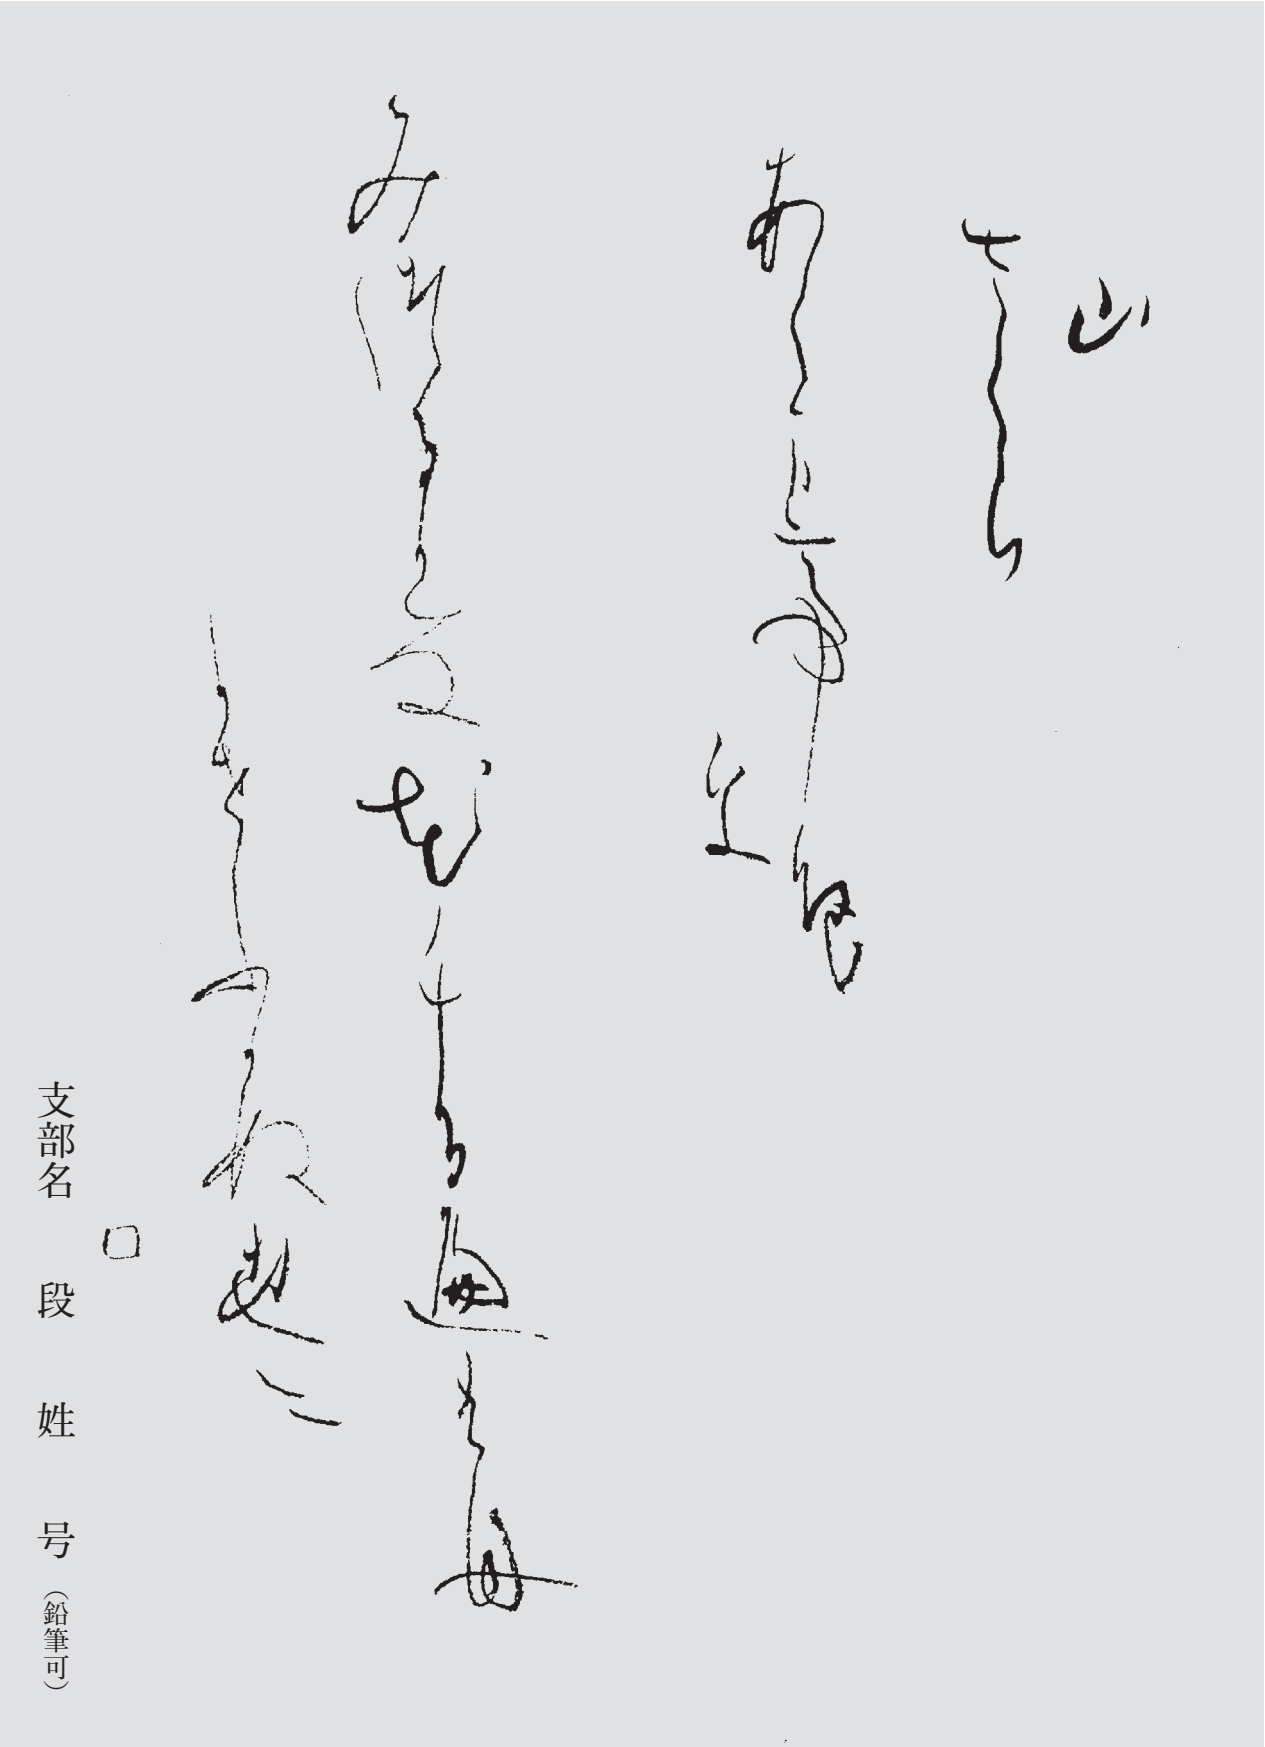 山
さくら
あくまて色
を
みつるかな花ちる遍くも
かせふかぬ世に
□
支部名 段 姓 号（鉛筆可）